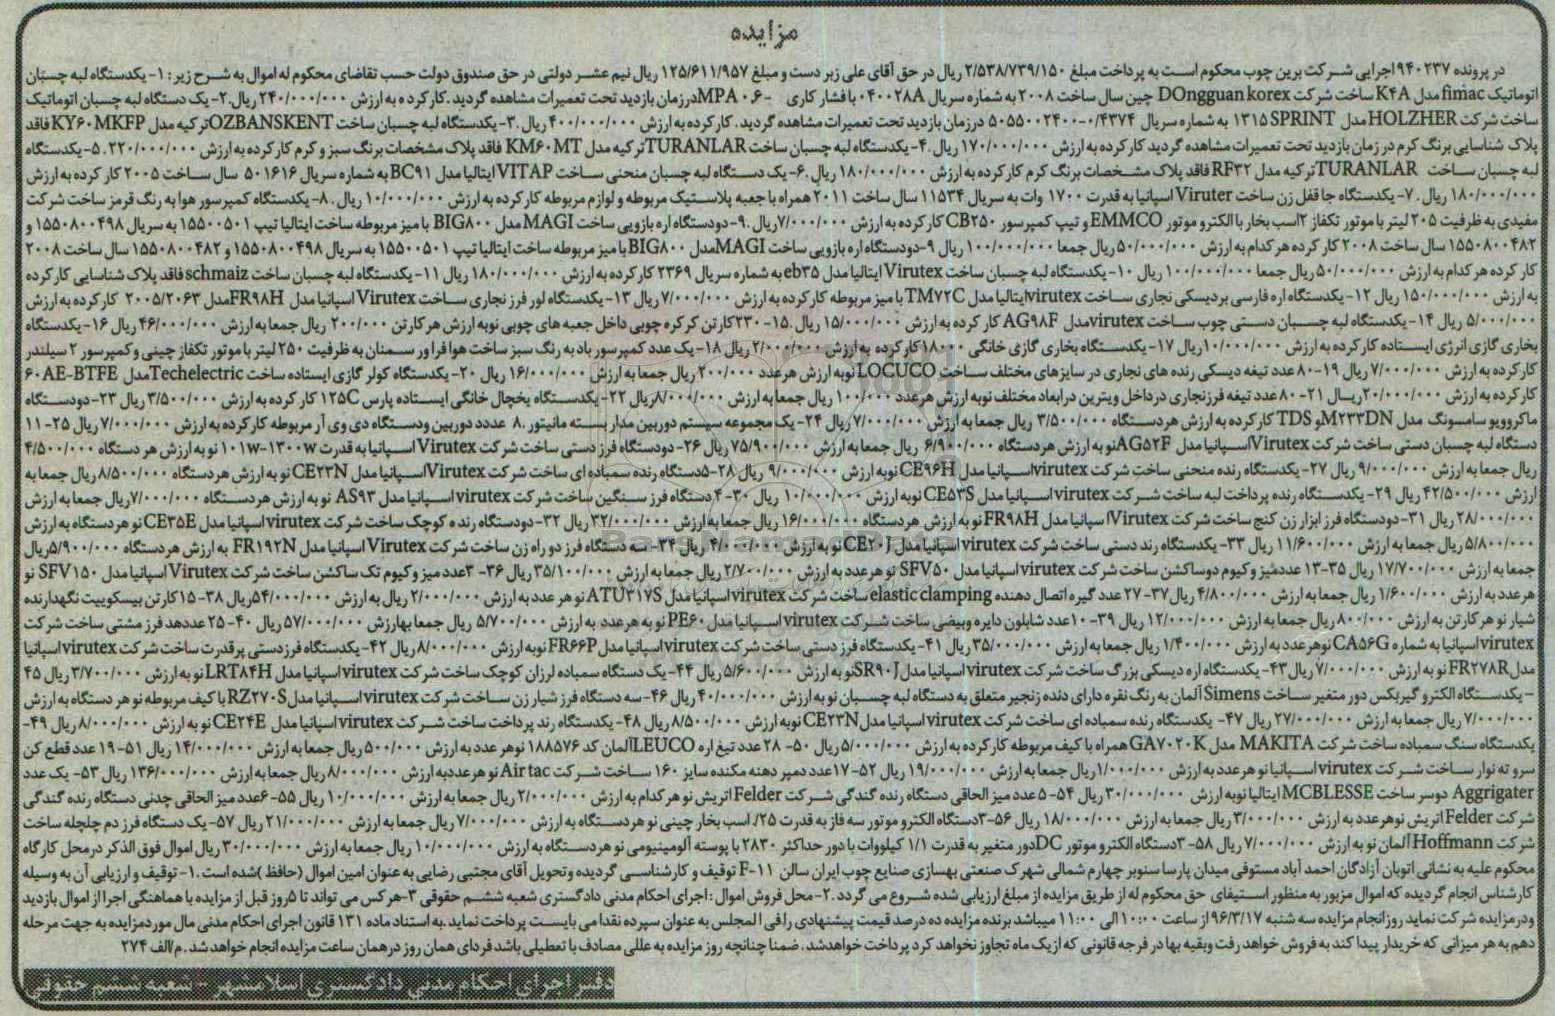 مزایده
در پرونده ۹۴۰۲۳۷ اجرایی شرکت برین چوب محکوم است به پرداخت مبلغ ۲/۵۳۸/۷۳۹/۱۵۰ ریال در حق آقای علی زبر دست و مبلغ ۱۲۵/۶۱۱/۹۵۷ ریال نیم عشر دولتی در حق صندوق دولت حسب تقاضای محکوم له اموال به شرح زیر : ۱- یکدستگاه لبه چسبان
اتوماتیک fimac مدل K۴A ساخت شرکت DOngguan korex چین سال ساخت ۲۰۰۸ به شماره سریال ۰۴۰۰۲۸A با فشار کاری ۰.۶- MPA درزمان بازدید تحت تعمیرات مشاهده گردید .کار کرده به ارزش ۲۴۰/۰۰۰/۰۰۰ ریال.۲- یک دستگاه لبه چسبان اتوماتیک
ساخت شرکت HOLZHER مدل ۱۳۱۵ SPRINT به شماره سریال ۰/۴۳۷۴-۵۰۵۵۰۰۲۴۰۰ درزمان بازدید تحت تعمیرات مشاهده گردید . کار کرده به ارزش ۴۰۰/۰۰۰/۰۰۰ ریال .۳- یکدستگاه لبه چسبان ساخت OZBANSKENT ترکیه مدل KY۶۰MKFP فاقد
پلاک شناسایی برنگ کرم در زمان بازدید تحت تعمیرات مشاهده گردید کار کرده به ارزش ۱۷۰/۰۰۰/۰۰۰ ریال .۴- یکدستگاه لبه چسبان ساخت TURANLAR ترکیه مدل KM۶۰MT فاقد پلاک مشخصات برنگ سبز و کرم کار کرده به ارزش ۲۲۰/۰۰۰/۰۰۰ .۵- یکدستگاه
لبه چسبان ساخت TURANLAR ترکیه مدل RF۳۲ فاقد پلاک مشخصات برنگ کرم کارکرده به ارزش ۱۸۰/۰۰۰/۰۰۰ ریال .۶- یک دستگاه لبه چسبان منحنی ساخت VITAP ایتالیا مدل BC۹۱ به شماره سریال ۵۰۱۶۱۶ سال ساخت ۲۰۰۵ کار کرده به ارزش
۱۸۰/۰۰۰/۰۰۰ ریال .۷- یکدستگاه جا قفل زن ساخت Viruter اسپانیا به قدرت ۱۷۰۰ وات به سریال ۱۱۵۳۴ سال ساخت ۲۰۱۱ همراه با جعبه پلاستیک مربوطه و لوازم مربوطه کار کرده به ارزش ۱۰/۰۰۰/۰۰۰ ریال .۸- یکدستگاه کمپرسور هوا به رنگ قرمز ساخت شرکت
مفیدی به ظرفیت ۲۰۵ لیتر با موتور تکفاز ۲اسب بخار با الکترو موتور EMMCO و تیپ کمپرسور CB۲۵۰ کار کرده به ارزش ۷/۰۰۰/۰۰۰ ریال.۹-دودستگاه اره بازویی ساخت MAGI مدل BIG۸۰۰ با میز مربوطه ساخت ایتالیا تیپ ۱۵۵۰۰۵۰۱ به سریال ۱۵۵۰۸۰۰۴۹۸ و
۱۵۵۰۸۰۰۴۸۲ سال ساخت ۲۰۰۸ کار کرده هر کدام به ارزش ۵۰/۰۰۰/۰۰۰ ریال جمعا ۱۰۰/۰۰۰/۰۰۰ ریال ۹-دودستگاه اره بازویی ساخت MAGI مدل BIG۸۰۰ با میز مربوطه ساخت ایتالیا تیپ ۱۵۵۰۰۵۰۱ به سریال ۱۵۵۰۸۰۰۴۹۸ و ۱۵۵۰۸۰۰۴۸۲ سال ساخت ۲۰۰۸
کار کرده هر کدام به ارزش ۵۰/۰۰۰/۰۰۰ ریال جمعا ۱۰۰/۰۰۰/۰۰۰ ریال ۱۰- یکدستگاه لبه چسبان ساخت Virutex ایتالیا مدل eb۳۵ به شماره سریال ۲۳۶۹ کار کرده به ارزش ۱۸۰/۰۰۰/۰۰۰ ریال ۱۱- یکدستگاه لبه چسبان ساخت schmaiz فاقد پلاک شناسایی کار کرده
به ارزش ۱۵۰/۰۰۰/۰۰۰ ریال ۱۲- یکدستگاه اره فارسی بردیسکی نجاری ساخت virutex ایتالیا مدل TM۷۲C با میز مربوطه کار کرده به ارزش ۷/۰۰۰/۰۰۰ ریال ۱۳- یکدستگاه لور فرز نجاری ساخت Virutex اسپانیا مدل FR۹۸H مدل ۲۰۰۵/۲۰۶۳ کار کرده به ارزش
۵/۰۰۰/۰۰۰ ریال ۱۴- یکدستگاه لبه چسبان دستی چوب ساخت virutex مدل AG۹۸F کار کرده به ارزش ۱۵/۰۰۰/۰۰۰ ریال .۱۵- ۲۳۰کارتن کرکره چوبی داخل جعبه های چوبی نوبه ارزش هر کارتن ۲۰۰/۰۰۰ ریال جمعا به ارزش ۴۶/۰۰۰/۰۰۰ ریال ۱۶- یکدستگاه
بخاری گازی انرژی ایستاده کار کرده به ارزش ۱۰/۰۰۰/۰۰۰ ریال ۱۷- یکدستگاه بخاری گازی خانگی ۱۸۰۰۰ کار کرده به ارزش ۲/۰۰۰/۰۰۰ ریال ۱۸- یک عدد کمپرسور باد به رنگ سبز ساخت هوا فراور سمنان به ظرفیت ۲۵۰ لیتر با موتور تکفاز چینی و کمپرسور ۲ سیلندر
کار کرده به ارزش ۷/۰۰۰/۰۰۰ ریال ۱۹-۸۰ عدد تیغه دیسکی رنده های نجاری در سایز های مختلف ساخت LOCUCO نوبه ارزش هر عدد ۲۰۰/۰۰۰ ریال جمعا به ارزش ۱۶/۰۰۰/۰۰۰ ریال ۲۰- یکدستگاه کولر گازی ایستاده ساخت Techelectric مدل ۶۰AE-BTFE
کار کرده به ارزش ۲۰/۰۰۰/۰۰۰ ریال ۲۱- ۸۰ عدد تیغه فرزنجاری درداخل ویترین درابعاد مختلف نوبه ارزش هر عدد ۱۰۰/۰۰۰ ریال جمعا به ارزش ۸/۰۰۰/۰۰۰ ریال ۲۲- یکدستگاه یخچال خانگی ایستاده پارس ۱۲۵C کار کرده به ارزش ۳/۵۰۰/۰۰۰ ریال ۲۳-دودستگاه
ماکروویو سامسونگ مدل M۲۳۳DN و TDS کار کرده به ارزش هر دستگاه ۳/۵۰۰/۰۰۰ ریال جمعا به ارزش ۷/۰۰۰/۰۰۰ ریال ۲۴- یک مجموعه سیستم دوربین مدار بسته مانیتور .۸ عدد دوربین و دستگاه دی وی آر مربوطه کار کرده به ارزش ۷/۰۰۰/۰۰۰ ریال ۲۵- ۱۱
دستگاه لبه چسبان دستی ساخت شرکت Virutex اسپانیا مدل AG۵۲F نوبه ارزش هر دستگاه ۶/۹۰۰/۰۰۰ ریال جمعا به ارزش ۷۵/۹۰۰/۰۰۰ ریال ۲۶- دودستگاه فرز دستی ساخت شرکت Virutex اسپانیا به قدرت ۱۰۱w-۱۳۰۰w نو به ارزش هر دستگاه ۴/۵۰۰/۰۰۰
ریال جمعا به ارزش ۹/۰۰۰/۰۰۰ ریال ۲۷- یکدستگاه رنده منحنی ساخت شرکت virutex اسپانیا مدل CE۹۶H نوبه ارزش ۹/۰۰۰/۰۰۰ ریال ۲۸-۵دستگاه رنده سمباده ای ساخت شرکت Virutex اسپانیا مدل CE۲۳N نو به ارزش هر دستگاه ۸/۵۰۰/۰۰۰ ریال جمعا به
ارزش ۴۲/۵۰۰/۰۰۰ ریال ۲۹- یکدستگاه رنده پرداخت لبه ساخت شرکت virutex اسپانیا مدل CE۵۳S نوبه ارزش ۱۰/۰۰۰/۰۰۰ ریال ۳۰-۴دستگاه فرز سنگین ساخت شرکت virutex اسپانیا مدل AS۹۳ نو به ارزش هر دستگاه ۷/۰۰۰/۰۰۰ ریال جمعا به ارزش
۲۸/۰۰۰/۰۰۰ ریال ۳۱- دودستگاه فرز ابزار زن کنج ساخت شرکت Virutex اسپانیا مدل FR۹۸H نو به ارزش هر دستگاه ۱۶/۰۰۰/۰۰۰ ریال جمعا به ارزش ۳۲/۰۰۰/۰۰۰ ریال ۳۲- دودستگاه رنده کوچک ساخت شرکت virutex اسپانیا مدل CE۳۵E نو هر دستگاه به ارزش
۵/۸۰۰/۰۰۰ ریال جمعا به ارزش ۱۱/۶۰۰/۰۰۰ ریال ۳۳- یکدستگاه رند دستی ساخت شرکت virutex اسپانیا مدل CE۲۰J نو به ارزش ۴/۰۰۰/۰۰۰ ریال ۳۴- سه دستگاه فرز دو راه زن ساخت شرکت Virutex اسپانیا مدل FR۱۹۲N به ارزش هر دستگاه ۵/۹۰۰/۰۰۰ ریال
جمعا به ارزش ۱۷/۷۰۰/۰۰۰ ریال ۳۵-۱۳ عددمیز وکیوم دوساکشن ساخت شرکت virutex اسپانیا مدل SFV۵۰ نو هر عدد به ارزش ۲/۷۰۰/۰۰۰ ریال جمعا به ارزش ۳۵/۱۰۰/۰۰۰ ریال ۳۶- ۳عدد میز و کیوم تک ساکشن ساخت شرکت Virutex اسپانیا مدل SFV۱۵۰ نو
هر عدد به ارزش ۱/۶۰۰/۰۰۰ ریال جمعا به ارزش ۴/۸۰۰/۰۰۰ ریال ۳۷- ۲۷ عدد گیره اتصال دهنده elastic clamping ساخت شرکت virutex اسپانیا مدل ATU۳۱۷S نو هر عدد به ارزش ۲/۰۰۰/۰۰۰ ریال به ارزش ۵۴/۰۰۰/۰۰۰ ریال ۳۸- ۱۵ کارتن بیسکوییت نگهدارنده
شیار نو هر کارتن به ارزش ۸۰۰/۰۰۰ ریال جمعا به ارزش ۱۲/۰۰۰/۰۰۰ ریال ۳۹-۱۰عدد شابلون دایره وبیضی ساخت شرکت virutex اسپانیا مدل PE۶۰ نو به هر عدد به ارزش ۵/۷۰۰/۰۰۰ ریال جمعا بهارزش ۵۷/۰۰۰/۰۰۰ ریال ۴۰-۲۵ عددهد فرز مشتی ساخت شرکت
virutex اسپانیا به شماره CA۵۶G نوهر عدد به ارزش ۱/۴۰۰/۰۰۰ ریال جمعا به ارزش ۳۵/۰۰۰/۰۰۰ ریال ۴۱- یکدستگاه فرز دستی ساخت شرکت virutex اسپانیا مدل FR۶۶P نوبه ارزش ۸/۰۰۰/۰۰۰ ریال ۴۲- یکدستگاه فرز دستی پرقدرت ساخت شرکت virutex اسپانیا
مدل FR۲۷۸R نو به ارزش ۷/۰۰۰/۰۰۰ ریال ۴۳- یکدستگاه اره دیسکی بزرگ ساخت شرکت virutex اسپانیا مدل SR۹۰J نو به ارزش ۵/۶۰۰/۰۰۰ ریال ۴۴- یک دستگاه سمباده لرزان کوچک ساخت شرکت virutex اسپانیا مدل LRT۸۴H نو به ارزش ۳/۷۰۰/۰۰۰ ریال ۴۵
– یکدستگاه الکترو گیربکس دور متغیر ساخت Simens آلمان به رنگ نقره دارای دنده زنجیر متعلق به دستگاه لبه چسبان نو به ارزش ۴۰/۰۰۰/۰۰۰ ریال ۴۶- سه دستگاه فرز شیار زن ساخت شرکت virutex اسپانیا مدل RZ۲۷۰S با کیف مربوطه نو هر دستگاه به ارزش
۷/۰۰۰/۰۰۰ ریال جمعا به ارزش ۲۷/۰۰۰/۰۰۰ ریال ۴۷- یکدستگاه رنده سمباده ای ساخت شرکت virutex اسپانیا مدل CE۲۳N نوبه ارزش ۸/۵۰۰/۰۰۰ ریال ۴۸- یکدستگاه رند پرداخت ساخت شرکت virutex اسپانیا مدل CE۲۴E نو به ارزش ۸/۰۰۰/۰۰۰ ریال ۴۹-
یکدستگاه سنگ سمباده ساخت شرکت MAKITA مدل GA۷۰۲۰K همراه با کیف مربوطه کار کرده به ارزش ۵/۰۰۰/۰۰۰ ریال ۵۰- ۲۸ عدد تیغ اره LEUCO آلمان کد ۱۸۸۵۷۶ نوهر عدد به ارزش ۵۰۰/۰۰۰ ریال جمعا به ارزش ۱۴/۰۰۰/۰۰۰ ریال ۵۱-۱۹ عدد قطع کن
سرو ته نوار ساخت شرکت virutex اسپانیا نو هر عدد به ارزش ۱/۰۰۰/۰۰۰ ریال جمعا به ارزش ۱۹/۰۰۰/۰۰۰ ریال ۵۲-۱۷عدد دمپر دهنه مکنده سایز ۱۶۰ ساخت شرکت Air tac نو هر عددبه ارزش ۸/۰۰۰/۰۰۰ ریال جمعا به ارزش ۱۳۶/۰۰۰/۰۰۰ ریال ۵۳- یک عدد
Aggrigater دوسر ساخت MCBLESSE ایتالیا نوبه ارزش ۳۰/۰۰۰/۰۰۰ ریال ۵۴- ۵عدد میز الحاقی دستگاه رنده گندگی شرکت Felder اتریش نو هر کدام به ارزش ۲/۰۰۰/۰۰۰ ریال جمعا به ارزش ۱۰/۰۰۰/۰۰۰ ریال ۵۵- ۶عدد میز الحاقی چدنی دستگاه رنده گندگی
شرکت Felder اتریش نوهر عدد به ارزش ۳/۰۰۰/۰۰۰ ریال جمعا به ارزش ۱۸/۰۰۰/۰۰۰ ریال ۵۶-۳دستگاه الکترو موتور سه فاز به قدرت ۲۵/. اسب بخار چینی نو هر دستگاه به ارزش ۷/۰۰۰/۰۰۰ ریال جمعا به ارزش ۲۱/۰۰۰/۰۰۰ ریال ۵۷- یک دستگاه فرز دم چلچله ساخت
شرکت Hoffmann آلمان نو به ارزش ۷/۰۰۰/۰۰۰ ریال ۵۸- ۳دستگاه الکترو موتور DC دور متغیر به قدرت ۱/۱ کیلووات با دور حداکثر ۲۸۳۰ با پوسته آلومینیومی نو هر دستگاه به ارزش ۱۰/۰۰۰/۰۰۰ ریال جمعا به ارزش ۳۰/۰۰۰/۰۰۰ ریال اموال فوق الذکر درمحل کارگاه
محکوم علیه به نشانی اتوبان آزادگان احمد آباد مستوفی میدان پارسا سنوبر چهارم شمالی شهرک صنعتی بهسازی صنایع چوب ایران سالن F-۱۱ توقیف و کارشناسی گردیده وتحویل آقای مجتبی رضایی به عنوان امین اموال (حافظ )شده است .۱- توقیف و ارزیابی آن به وسیله
کارشناس انجام گردیده که اموال مزبور به منظور استیفای حق محکوم له از طریق مزایده از مبلغ ارزیابی شده شروع می گردد .۲- محل فروش اموال : اجرای احکام مدنی دادگستری شعبه ششم حقوقی ۳-هر کس می تواند تا ۵روز قبل از مزایده با هماهنگی اجرا از اموال بازدید
ودرمزایده شرکت نماید روزانجام مزایده سه شنبه ۹۶/۳/۱۷ از ساعت ۱۰:۰۰ الی ۱۱:۰۰ میباشد برنده مزایده ده درصد قیمت پیشنهادی رافی المجلس به عنوان سپرده نقدا می بایست پرداخت نماید .به استناد ماده ۱۳۱ قانون اجرای احکام مدنی مال موردمزایده به جهت مرحله
دهم به هر میزانی که خریدار پیدا کند به فروش خواهد رفت وبقیه بها در فرجه قانونی که ازیک ماه تجاوز نخواهد کرد پرداخت خواهدشد . ضمنا چنانچه روز مزایده به عللی مصادف با تعطیلی باشد فردای همان روز درهمان ساعت مزایده انجام خواهد شد . م/الف ۲۷۴
دفتر اجرای احکام مدنی دادگستری اسلامشهر - شعبه ششم حقوقی